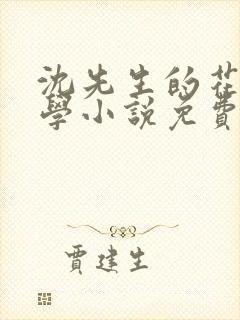 沈先生的花
學小說免費
賈建生